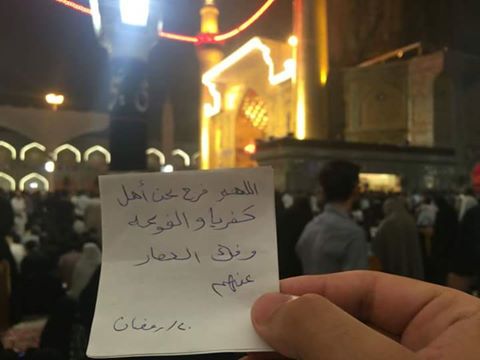 اللهم فرج عن أهل
كفريا والفوعه
وفك الحصار
عنهم
٢٠/رمضان